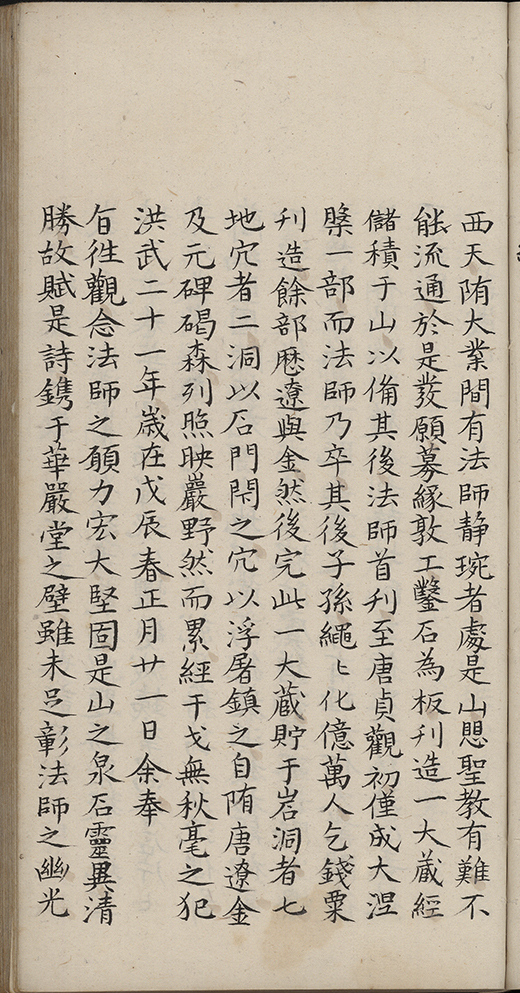 西天隋大業間有法師静琬者處是山愳聖教有難不
能流通於是發願募緣敦工鑿石為板刋造一大蔵經
儲積于山以俻其後法師首刋至唐貞觀初僅成大涅
槃一部而法師乃卒其後子孫繩〻化億萬人乞錢粟
刋造餘部歷遼與金然後完此一大蔵貯于岩洞者七
地穴者二洞以石門閇之穴以浮屠鎮之自隋唐遼金
及元碑碣森列照映巖野然而累經干戈無秋毫之犯
洪武二十一年嵗在戊辰春正月廿一日余奉
㫖徃觀念法師之願力宏大堅固是山之泉石靈異清
勝故賦是詩鐫于華嚴堂之壁雖未足彰法師之幽光